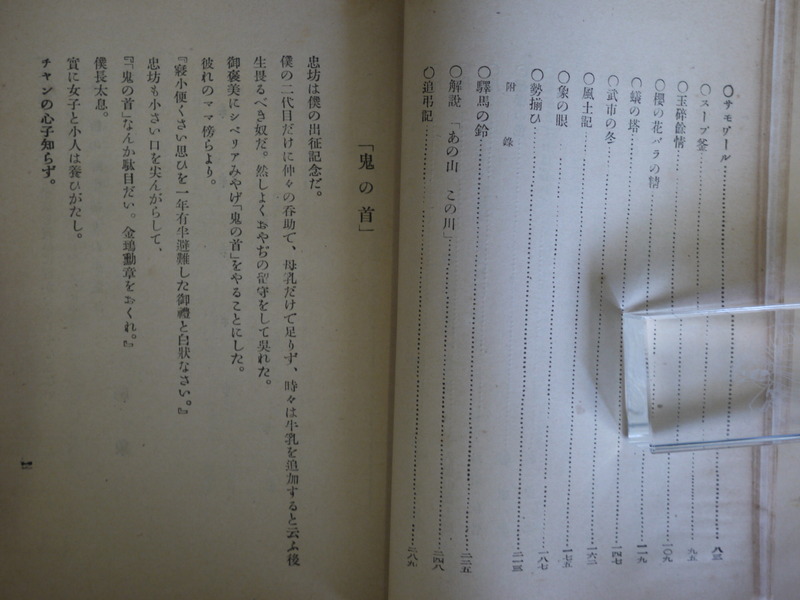 〇サモワール……八三
〇スープ釜
〇玉碎餘情……九五
〇櫻の花バラの精……一〇九
〇蟻の塔……一一九
〇武市の冬……一四七
〇風土記……一六二
〇象の眼……一七五
〇勢揃ひ……一八七
附錄
〇驛馬の鈴……二二五
〇解說「あの山 この川」……二四八
〇追弔記……二八九
「鬼の首」
忠坊は僕の出征記念だ。
僕の二代目だけに仲々の呑助で、母乳だけで足りず、時々は牛乳を追加すると云ふ後
生畏るべき奴だ。然しよくおやぢの留守をして吳れた。
御褒美にシベリアみやげ「鬼の首」をやることにした。
彼れのママ傍らより。
『寢小便くさい思ひを一年有半避難した御禮と白狀なさい。』
忠坊も小さい口を尖んがらして、
『「鬼の首」なんか駄目だい。金鵄勳章をおくれ。』
僕長太息。
實に女子と小人は養ひがたし。
チャンの心子知らず。